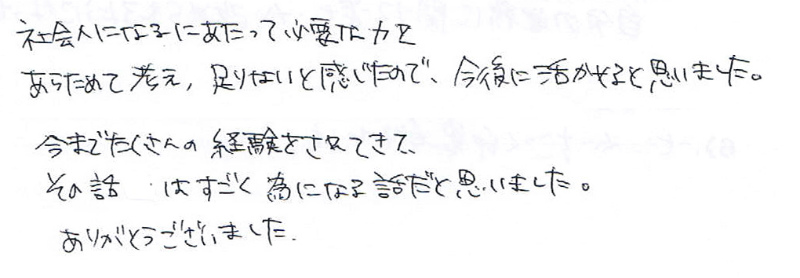 社会人になるにあたって必要な力を
あらためて考え、足りないと感じたので、今後に活かせると思いました。
今までたくさんの経験をされてきて、
その話 はすごく為になる話だと思いました。
ありがとうございました.